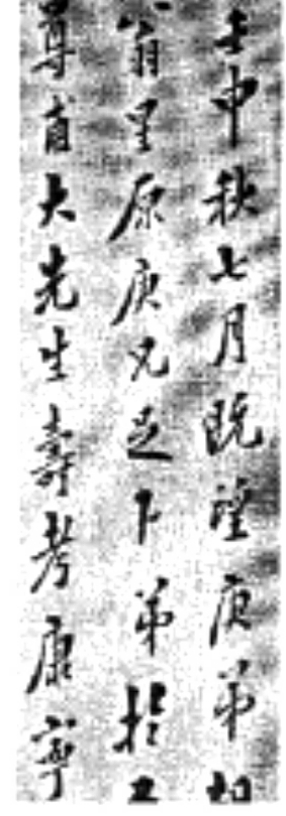 壬申秋七月既望庚弟如
翁里原庚兄足下弟於
尊甫大先生壽考康寧